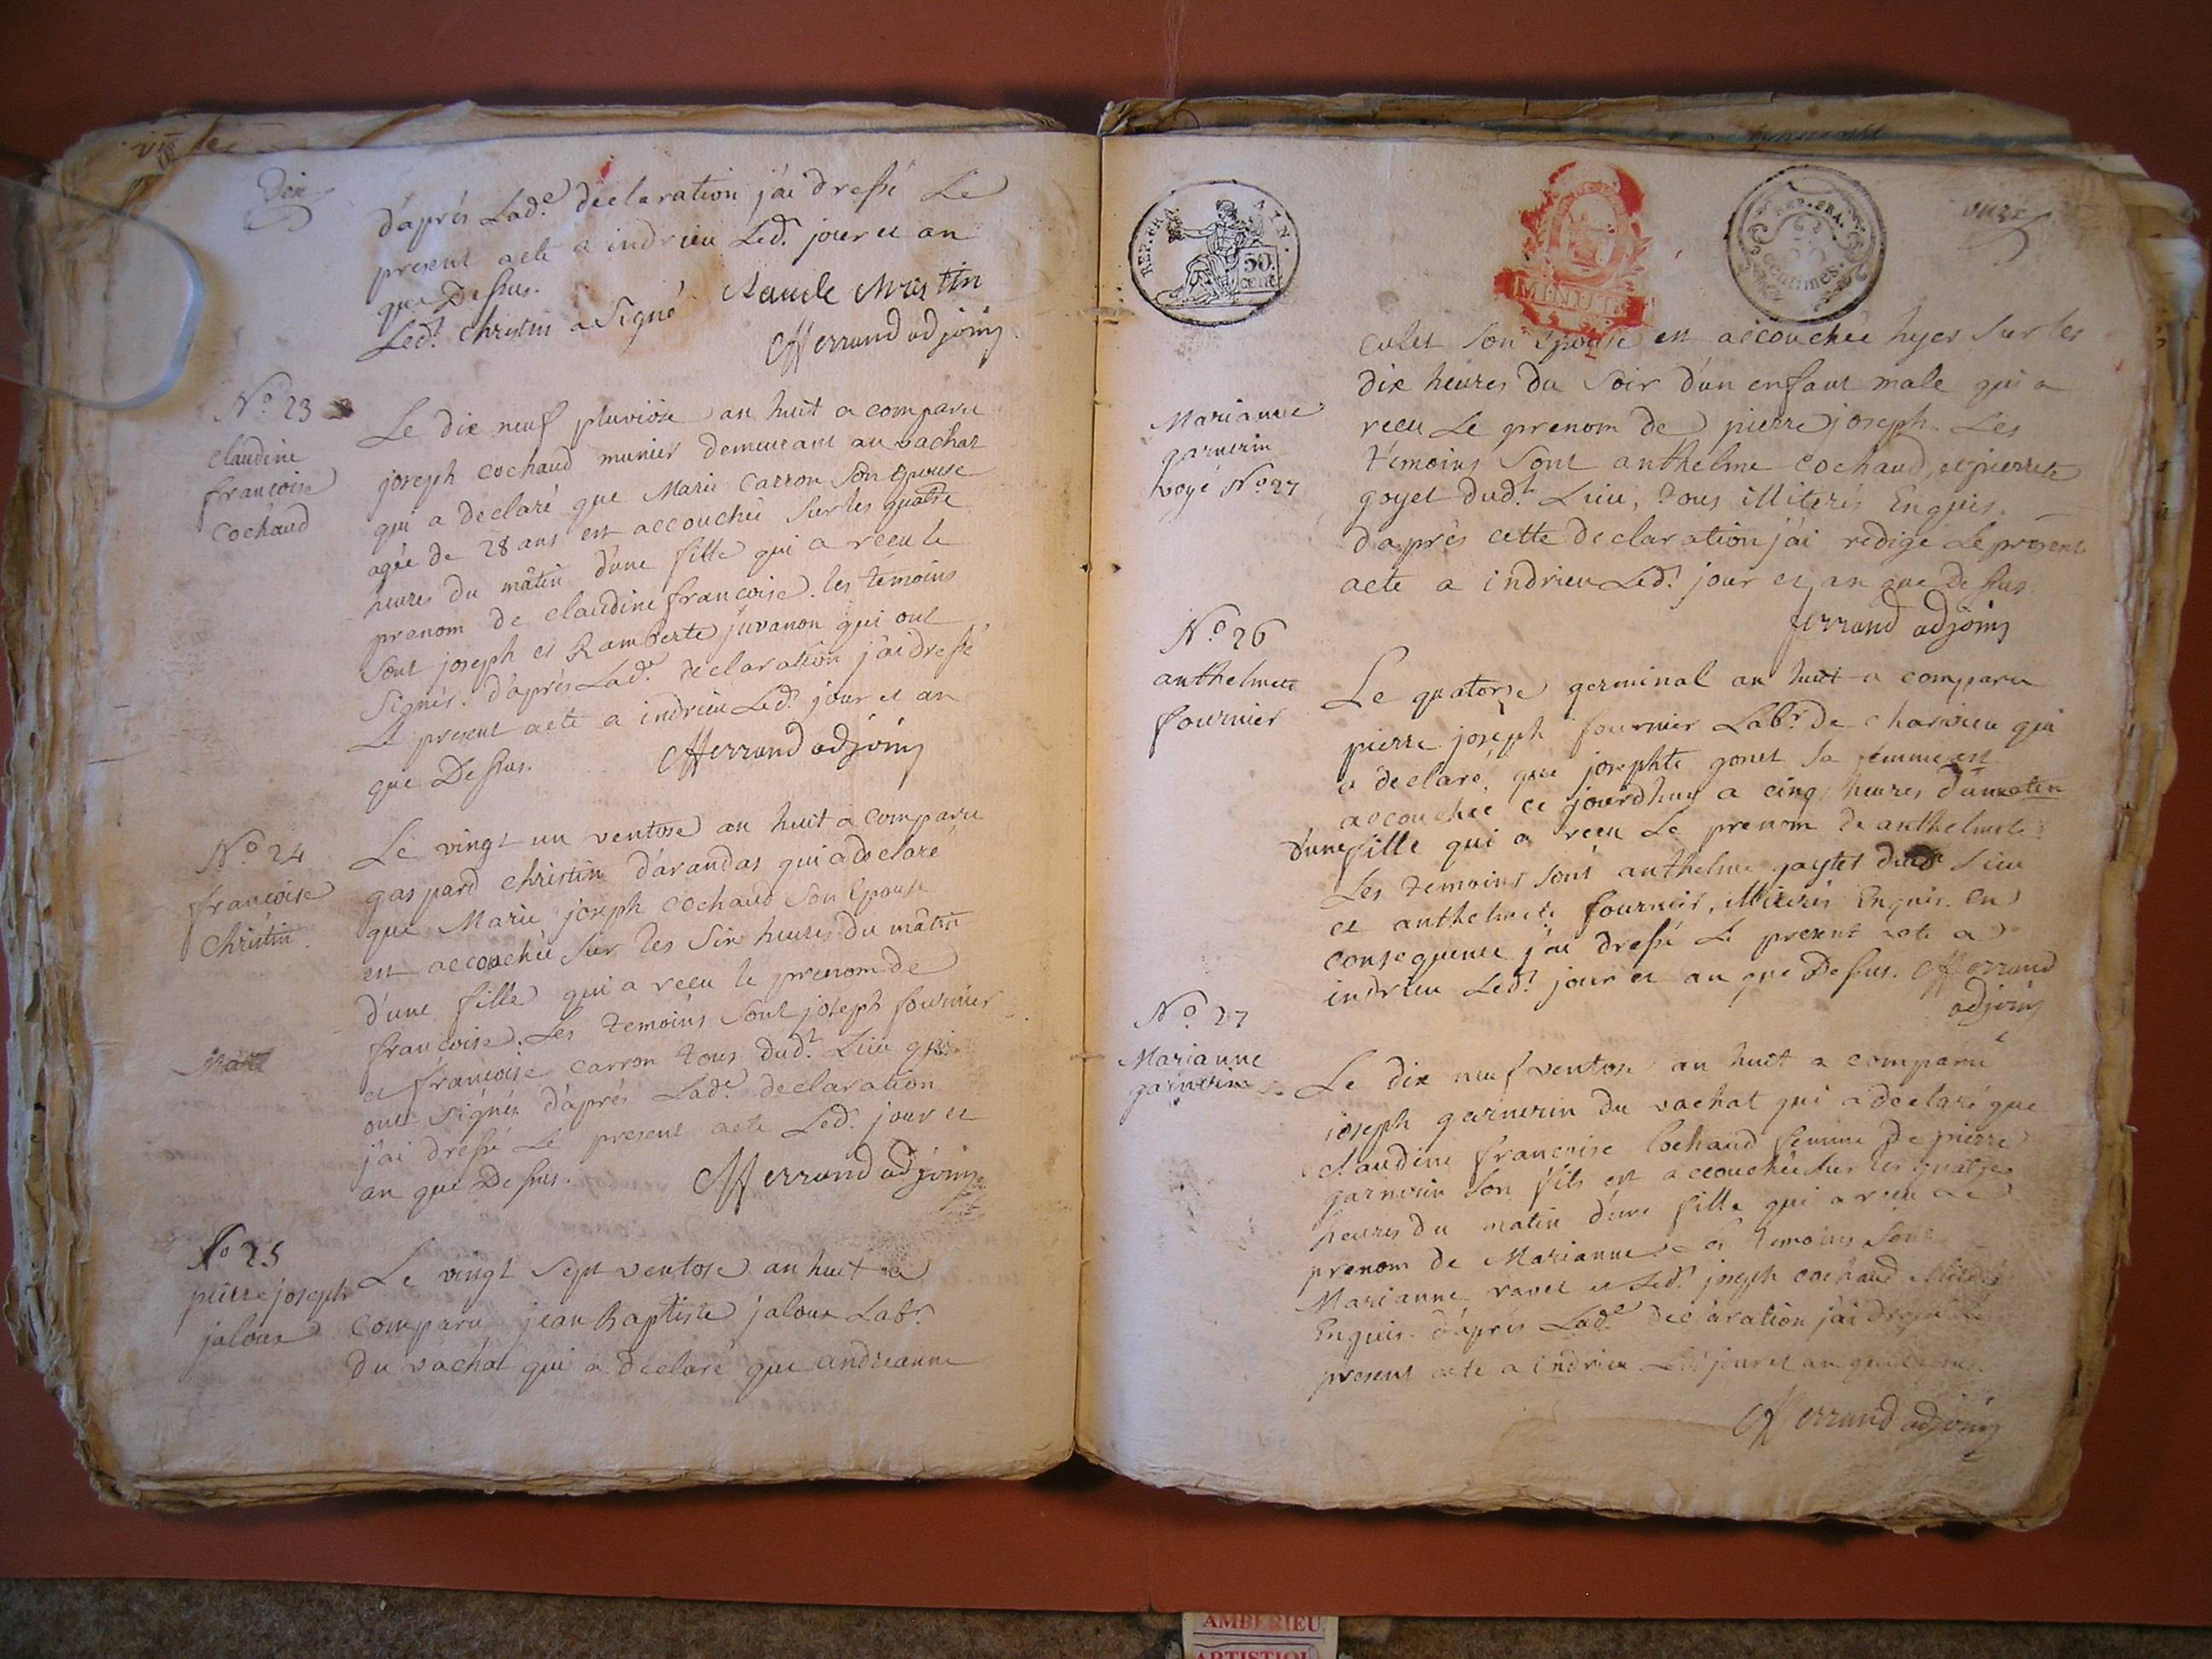 dix
d'aprés Lad.e declaration j'ai dressé Le
present acte a indrieu Led.t jour et an
que Dessus.
Led.t christin a Signé
Christin
fferrand adjoint
N.o 23
claudine
francoise
Cochaud
Le dix neuf pluviose an huit a comparu
joseph cochaud munier demeurant au vachat
qui a declaré que Marie Carron Son Epouse
agée de 28 ans est accouchée Sur les quatre
heures du mâtin d'une fille qui a recu le
prenom de claudine francoise. les témoins
Sont joseph et Ramberte juvanon qui ont
Signés. d'aprés Lad.e declaration j'ai dressé
Le present acte a indrieu Led.t jour et an
que Dessus.
fferrand adjoint
N.o 24
francoise
Christin.
Le vingt un ventose an huit a comparu
gaspard christin d'arandas qui a declaré
que Marie joseph cochaud Son Epouse
est accouchée Sur les Six heures du mâtin
d'une fille qui a recu le prenom de
francoise. Les temoins Sont joseph fournier
et francoise carron tous dud.t Lieu qui
ont Signés d'aprés Lad.e declaration
j'ai dressé Le present acte Led.t jour et
an que Dessus.
fferrand adjoint
N.o 25
pierre joseph
jaloux
Le vingt Sept ventose an huit a
comparu jean Baptiste jaloux Lab.r
du vachat qui a declaré que andreanne
REP. FRA.
50.
cent.
MINUTE
REP. FRA.
centimes.
onze
culet Son Epouse est accouchée hyer Sur les
dix heures du Soir d'un enfant male qui a
recu Le prenom de pierre joseph. Les
témoins Sont anthelme cochaud, et pierrette
goyet dud.t Lieu, tous illiterés Enquis.
d'aprés cette declaration j'ai redigé Le present
acte a indrieu Led.t jour et an que Dessus.
Marianne
garnerin
voyé N.o 27
ferrand adjoint
N.o 26
anthelmete
fournier
Le quatorse germinal an huit a comparu
pierre joseph fournier Lab.r de charvieu qui
a declaré, que josephte gonet Sa femme est
accouchée ce jourdhuy a cinq heures dumatin
d'une fille qui a recu Le prenom de anthelmete
Les temoins Sont anthelme goytet dud.t Lieu
et anthelmete fournier, illiterés Enquis. En
consequence j'ai dressé Le present acte a
indrieu Led.t jour et an que Dessus. fferrand
adjoint
N.o 27
Marianne
garnerin
Le dix neuf ventose an huit a comparu
joseph garnerin du vachat qui a declaré que
claudine francoise Cochaud femme de pierre
garnerin Son fils est accouchée Sur les quatre
heures du matin d'une fille qui a recu Le
prenom de Marianne Les temoins Sont
Marianne ravet et Led.t joseph cochaud
Enquis. d'aprés Lad.e declaration j'ai dressé Le
present acte a indrieu Led.t jour et an que dessus.
fferrand adjoint
AMBERIEU